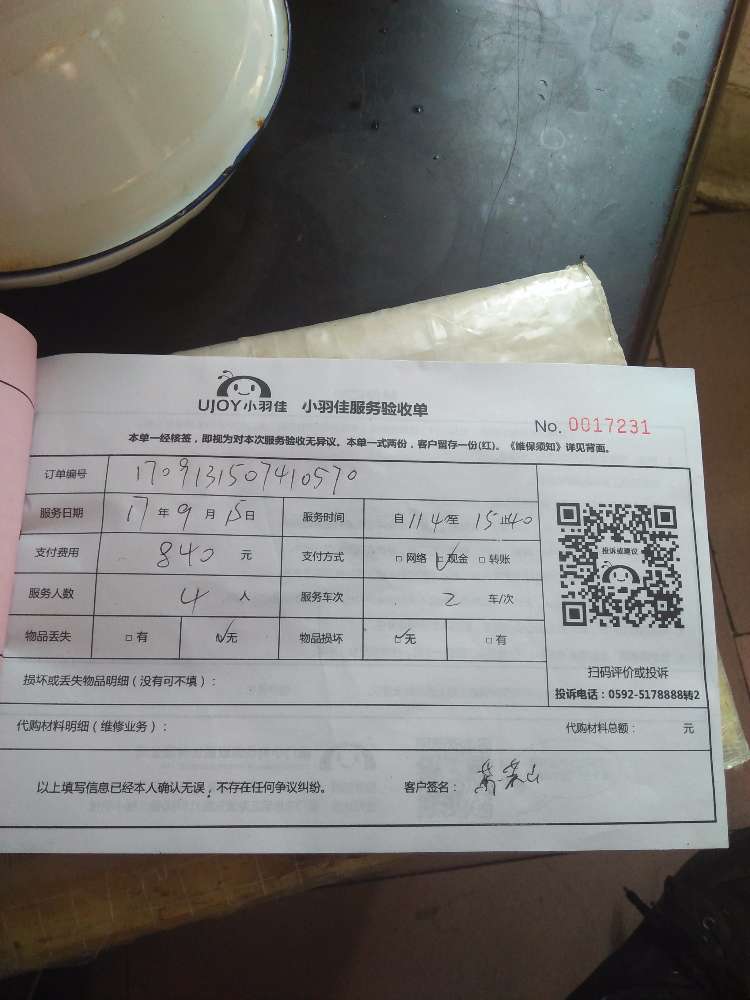 UJOY小羽佳 小羽佳服务验收单
No. 0017231
本单一经核签，即视为对本次服务验收无异议。本单一式两份，客户留存一份(红)。《维保须知》详见背面。
订单编号 1709131507410570
服务日期 17年9月15日 服务时间 自114至15止40
支付费用 840元 支付方式 网络 现金 转账
服务人数 4人 服务车次 2车/次
物品丢失 有 无 物品损坏 无 有
投诉或建议
扫码评价或投诉
投诉电话：0592-5178888转2
损坏或丢失物品明细（没有可不填）：
代购材料明细（维修业务）： 代购材料总额： 元
以上填写信息已经本人确认无误，不存在任何争议纠纷。 客户签名：